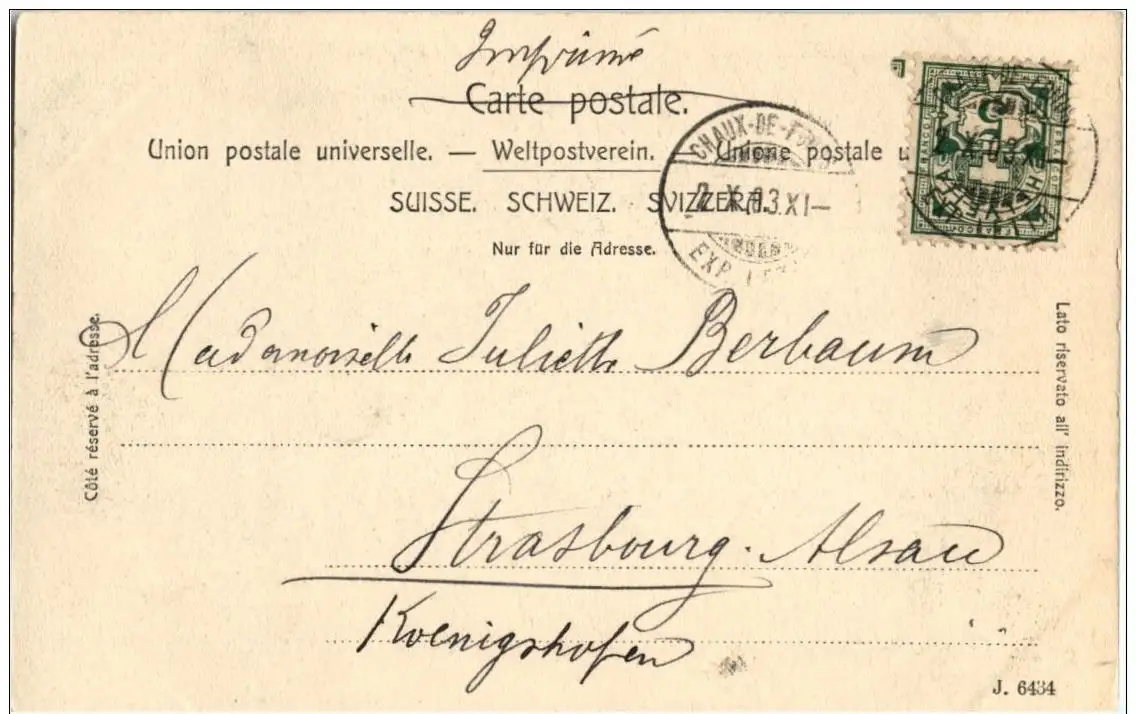 Imprimé
Carte postale.
Union postale universelle. — Weltpostverein. Unione postale u
SUISSE. SCHWEIZ. SVIZZERA.
Nur für die Adresse.
CHAUX-DE-FONDS
X. 03. XI—
EXP.
HELVETIA
FRANCO
5
Côté réservé à l'adresse.
Mademoiselle Juliette Berbaum
Lato riservato all' indirizzo.
Strasbourg. Alsace
Koenigshofen
J. 6434